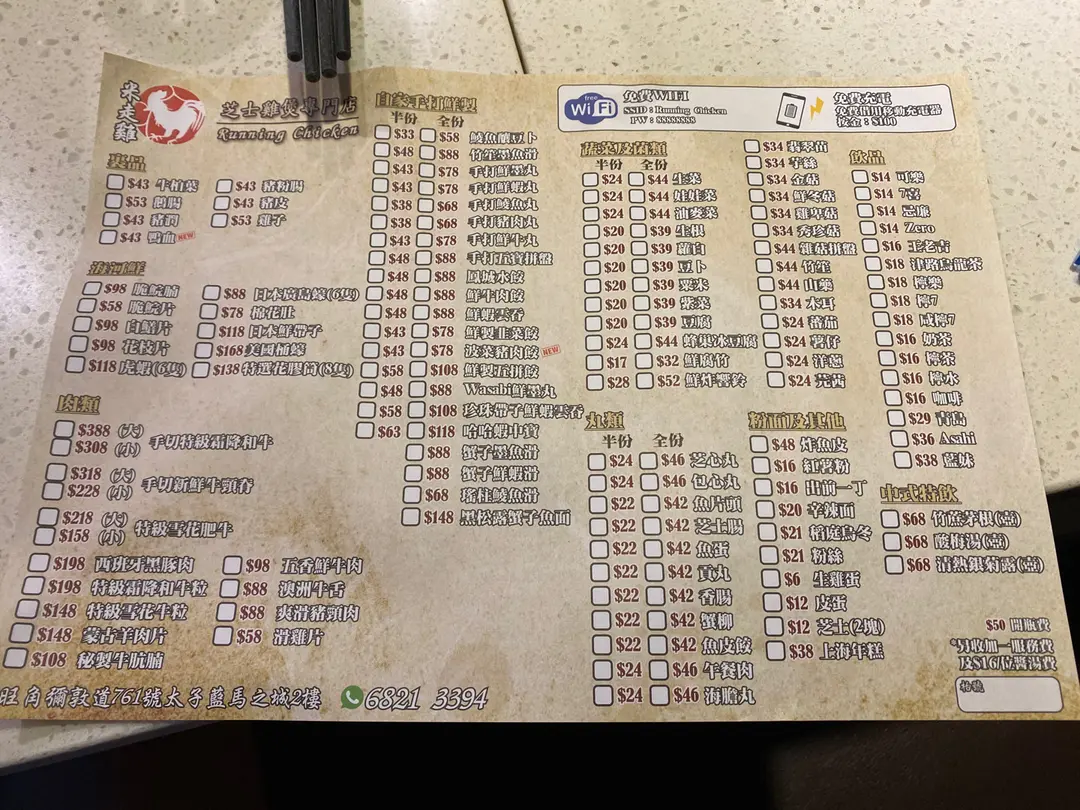 米走雞
芝士雞煲專門店
Running Chicken
free
WiFi
免費WIFI
SSID : Running Chicken
PW : 88888888
免費充電
免費借用移動充電器
按金：$100
裏品
$43 牛柏葉
$43 豬粉腸
$53 鵝腸
$43 豬皮
$43 豬膶
$53 雞子
$43 鴨血 NEW
海河鮮
$98 脆鯇腩
$88 日本廣島蠔(6隻)
$58 脆鯇片
$78 棉花肚
$98 白鱔片
$118 日本鮮帶子
$98 花枝片
$168 美國桶蠔
$118 虎蝦(6隻)
$138 特選花膠筒(8隻)
肉類
$388 (大)
$308 (小)
手切特級霜降和牛
$318 (大)
$228 (小)
手切新鮮牛頸脊
$218 (大)
$158 (小)
特級雪花肥牛
$198 西班牙黑豚肉
$98 五香鮮牛肉
$198 特級霜降和牛粒
$88 澳洲牛舌
$148 特級雪花牛粒
$88 爽滑豬頸肉
$148 蒙古羊肉片
$58 滑雞片
$108 秘製牛肮腩
自家手打鮮製
半份 全份
$33 $58 鯪魚釀豆卜
$48 $88 竹笙墨魚滑
$43 $78 手打鮮墨丸
$43 $78 手打鮮蝦丸
$38 $68 手打鯪魚丸
$38 $68 手打豬肉丸
$43 $78 手打鮮牛丸
$48 $88 手打五寶拼盤
$48 $88 鳳城水餃
$48 $88 鮮牛肉餃
$48 $88 鮮蝦雲吞
$43 $78 鮮製韭菜餃
$43 $78 菠菜豬肉餃 NEW
$58 $108 鮮製五拼餃
$48 $88 Wasabi鮮墨丸
$58 $108 珍珠帶子鮮蝦雲吞
$63 $118 哈哈蝦中寶
$88 蟹子墨魚滑
$88 蟹子鮮蝦滑
$68 瑤柱鯪魚滑
$148 黑松露蟹子魚面
蔬菜及菌類
半份 全份
$24 $44 生菜
$24 $44 娃娃菜
$24 $44 油麥菜
$20 $39 生根
$20 $39 蘿白
$20 $39 豆卜
$20 $39 粟米
$20 $39 紫菜
$20 $39 豆腐
$24 $44 蜂巢冰豆腐
$17 $32 鮮腐竹
$28 $52 鮮炸響鈴
$34 翡翠苗
$34 芋絲
$34 金菇
$34 鮮冬菇
$34 雞脾菇
$34 秀珍菇
$44 雜菇拼盤
$44 竹笙
$44 山藥
$34 木耳
$24 蕃茄
$24 薯仔
$24 洋蔥
$24 芫茜
丸類
半份 全份
$24 $46 芝心丸
$24 $46 包心丸
$22 $42 魚片頭
$22 $42 芝士腸
$22 $42 魚蛋
$22 $42 貢丸
$22 $42 香腸
$22 $42 蟹柳
$22 $42 魚皮餃
$24 $46 午餐肉
$24 $46 海膽丸
粉面及其他
$48 炸魚皮
$16 紅薯粉
$16 出前一丁
$20 辛辣面
$21 稻庭烏冬
$21 粉絲
$6 生雞蛋
$12 皮蛋
$12 芝士(2塊)
$38 上海年糕
飲品
$14 可樂
$14 7喜
$14 忌廉
$14 Zero
$16 王老吉
$18 津路烏龍茶
$18 檸樂
$18 檸7
$18 咸檸7
$16 奶茶
$16 檸茶
$16 檸水
$16 咖啡
$29 青島
$36 Asahi
$38 藍妹
中式特飲
$68 竹蔗茅根(壺)
$68 酸梅湯(壺)
$68 清熱銀菊露(壺)
$50 開瓶費
*另收加一服務費
及$16/位醬湯費
枱號
旺角彌敦道761號太子藍馬之城2樓
6821 3394